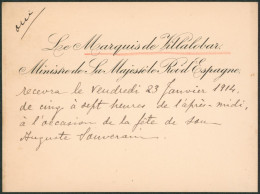 oui
Le Marquis de Villalobar,
Ministre de Sa Majesté le Roi d'Espagne,
recevra le Vendredi 23 Janvier 1914,
de cinq à sept heures de l'après-midi,
à l'occasion de la fête de son
Auguste Souverain.